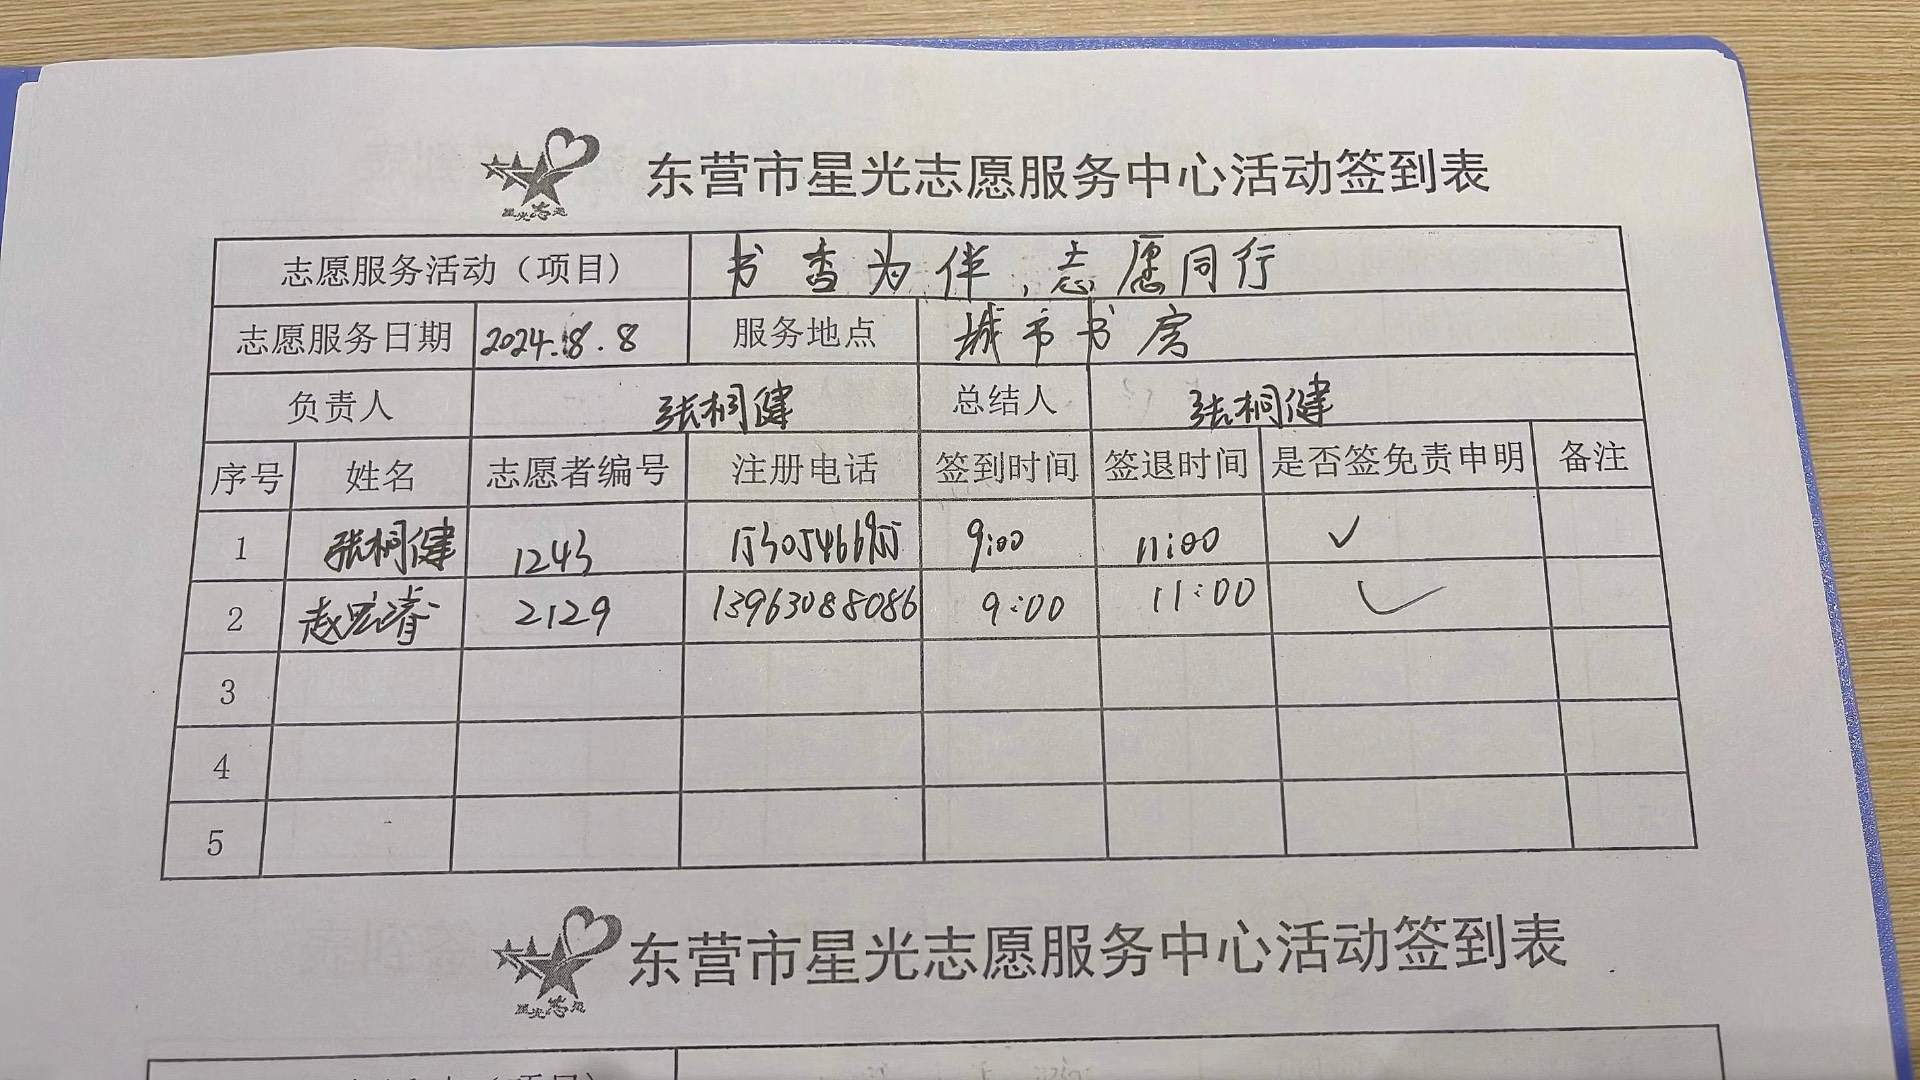 星光志愿
东营市星光志愿服务中心活动签到表
志愿服务活动（项目） 书香为伴，志愿同行
志愿服务日期 2024.8.8 服务地点 城市书房
负责人 张桐健 总结人 张桐健
序号 姓名 志愿者编号 注册电话 签到时间 签退时间 是否签免责申明 备注
1 张桐健 1243 9:00 11:00 ✓
2 赵宏睿 2129 13963088086 9:00 11:00 ✓
3
4
5
星光志愿
东营市星光志愿服务中心活动签到表